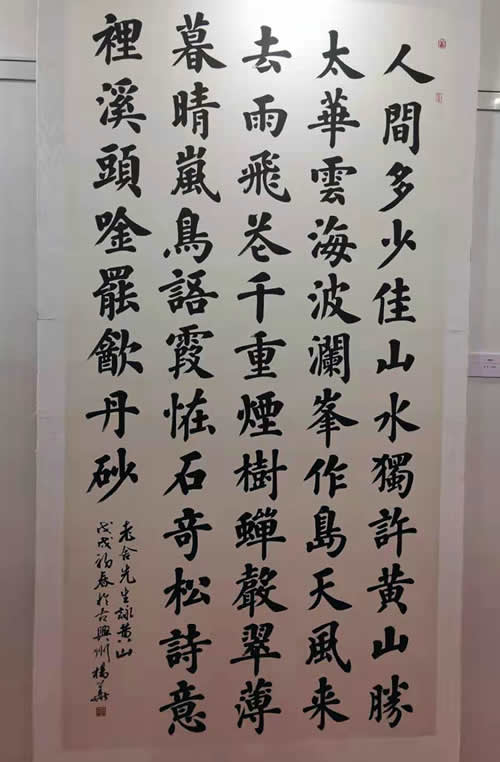 人間多少佳山水獨許黄山勝
太華雲海波瀾峯作島天風来
去雨飛花千重煙樹蟬聲翠薄
暮晴嵐鳥語霞恠石奇松詩意
裡溪頭唫罷㱃丹砂
老舍先生詠黄山
戊戌初春於古興州